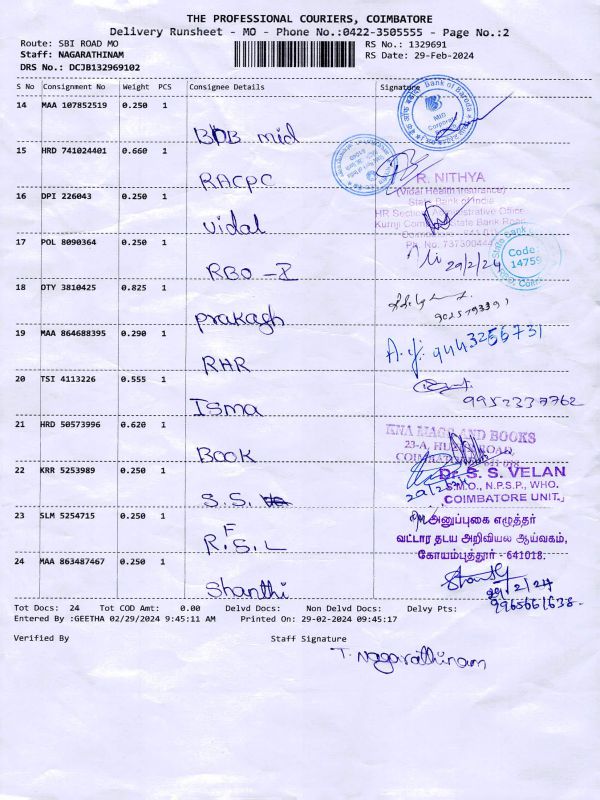 THE PROFESSIONAL COURIERS, COIMBATORE
Delivery Runsheet - MO - Phone No.:0422-3505555 - Page No.:2
Route: SBI ROAD MO
RS No.: 1329691
Staff: NAGARATHINAM
RS Date: 29-Feb-2024
DRS No.: DCJB132969102
S No Consignment No Weight PCS Consignee Details Signature
14 MAA 107852519 0.250 1
BOB mid
Bank of Baroda
15 HRD 741024401 0.660 1
RACPC
R. NITHYA
(Vidal Health Insurance)
State Bank of India
16 DPI 226043 0.250 1
Vidal
HR Section, Administrative Office
Kurnji Complex, State Bank Road
Ph. No. 737300444
17 POL 8090364 0.250 1
RBO - I
29/2/24
State Bank
Code:
14759
18 DTY 3810425 0.825 1
prakash
9025793391
19 MAA 864688395 0.290 1
RHR
A.y. 9443256731
20 TSI 4113226 0.555 1
Isma
9952337762
21 HRD 50573996 0.620 1
Book
KNA MAGS AND BOOKS
22 KRR 5253989 0.250 1
S.S.
Dr. S. S. VELAN
S.M.O., N.P.S.P., WHO.
COIMBATORE UNIT.
23 SLM 5254715 0.250 1
R.F.S.L
அனுப்புகை எழுத்தர்
வட்டார தடய அறிவியல் ஆய்வகம்,
கோயம்புத்தூர் - 641018.
24 MAA 863487467 0.250 1
Shanthi
Shanthi
29/2/24
9965661638
Tot Docs: 24 Tot COD Amt: 0.00 Delvd Docs: Non Delvd Docs: Delvy Pts:
Entered By :GEETHA 02/29/2024 9:45:11 AM Printed On: 29-02-2024 09:45:17
Verified By Staff Signature
T. Nagarathinam